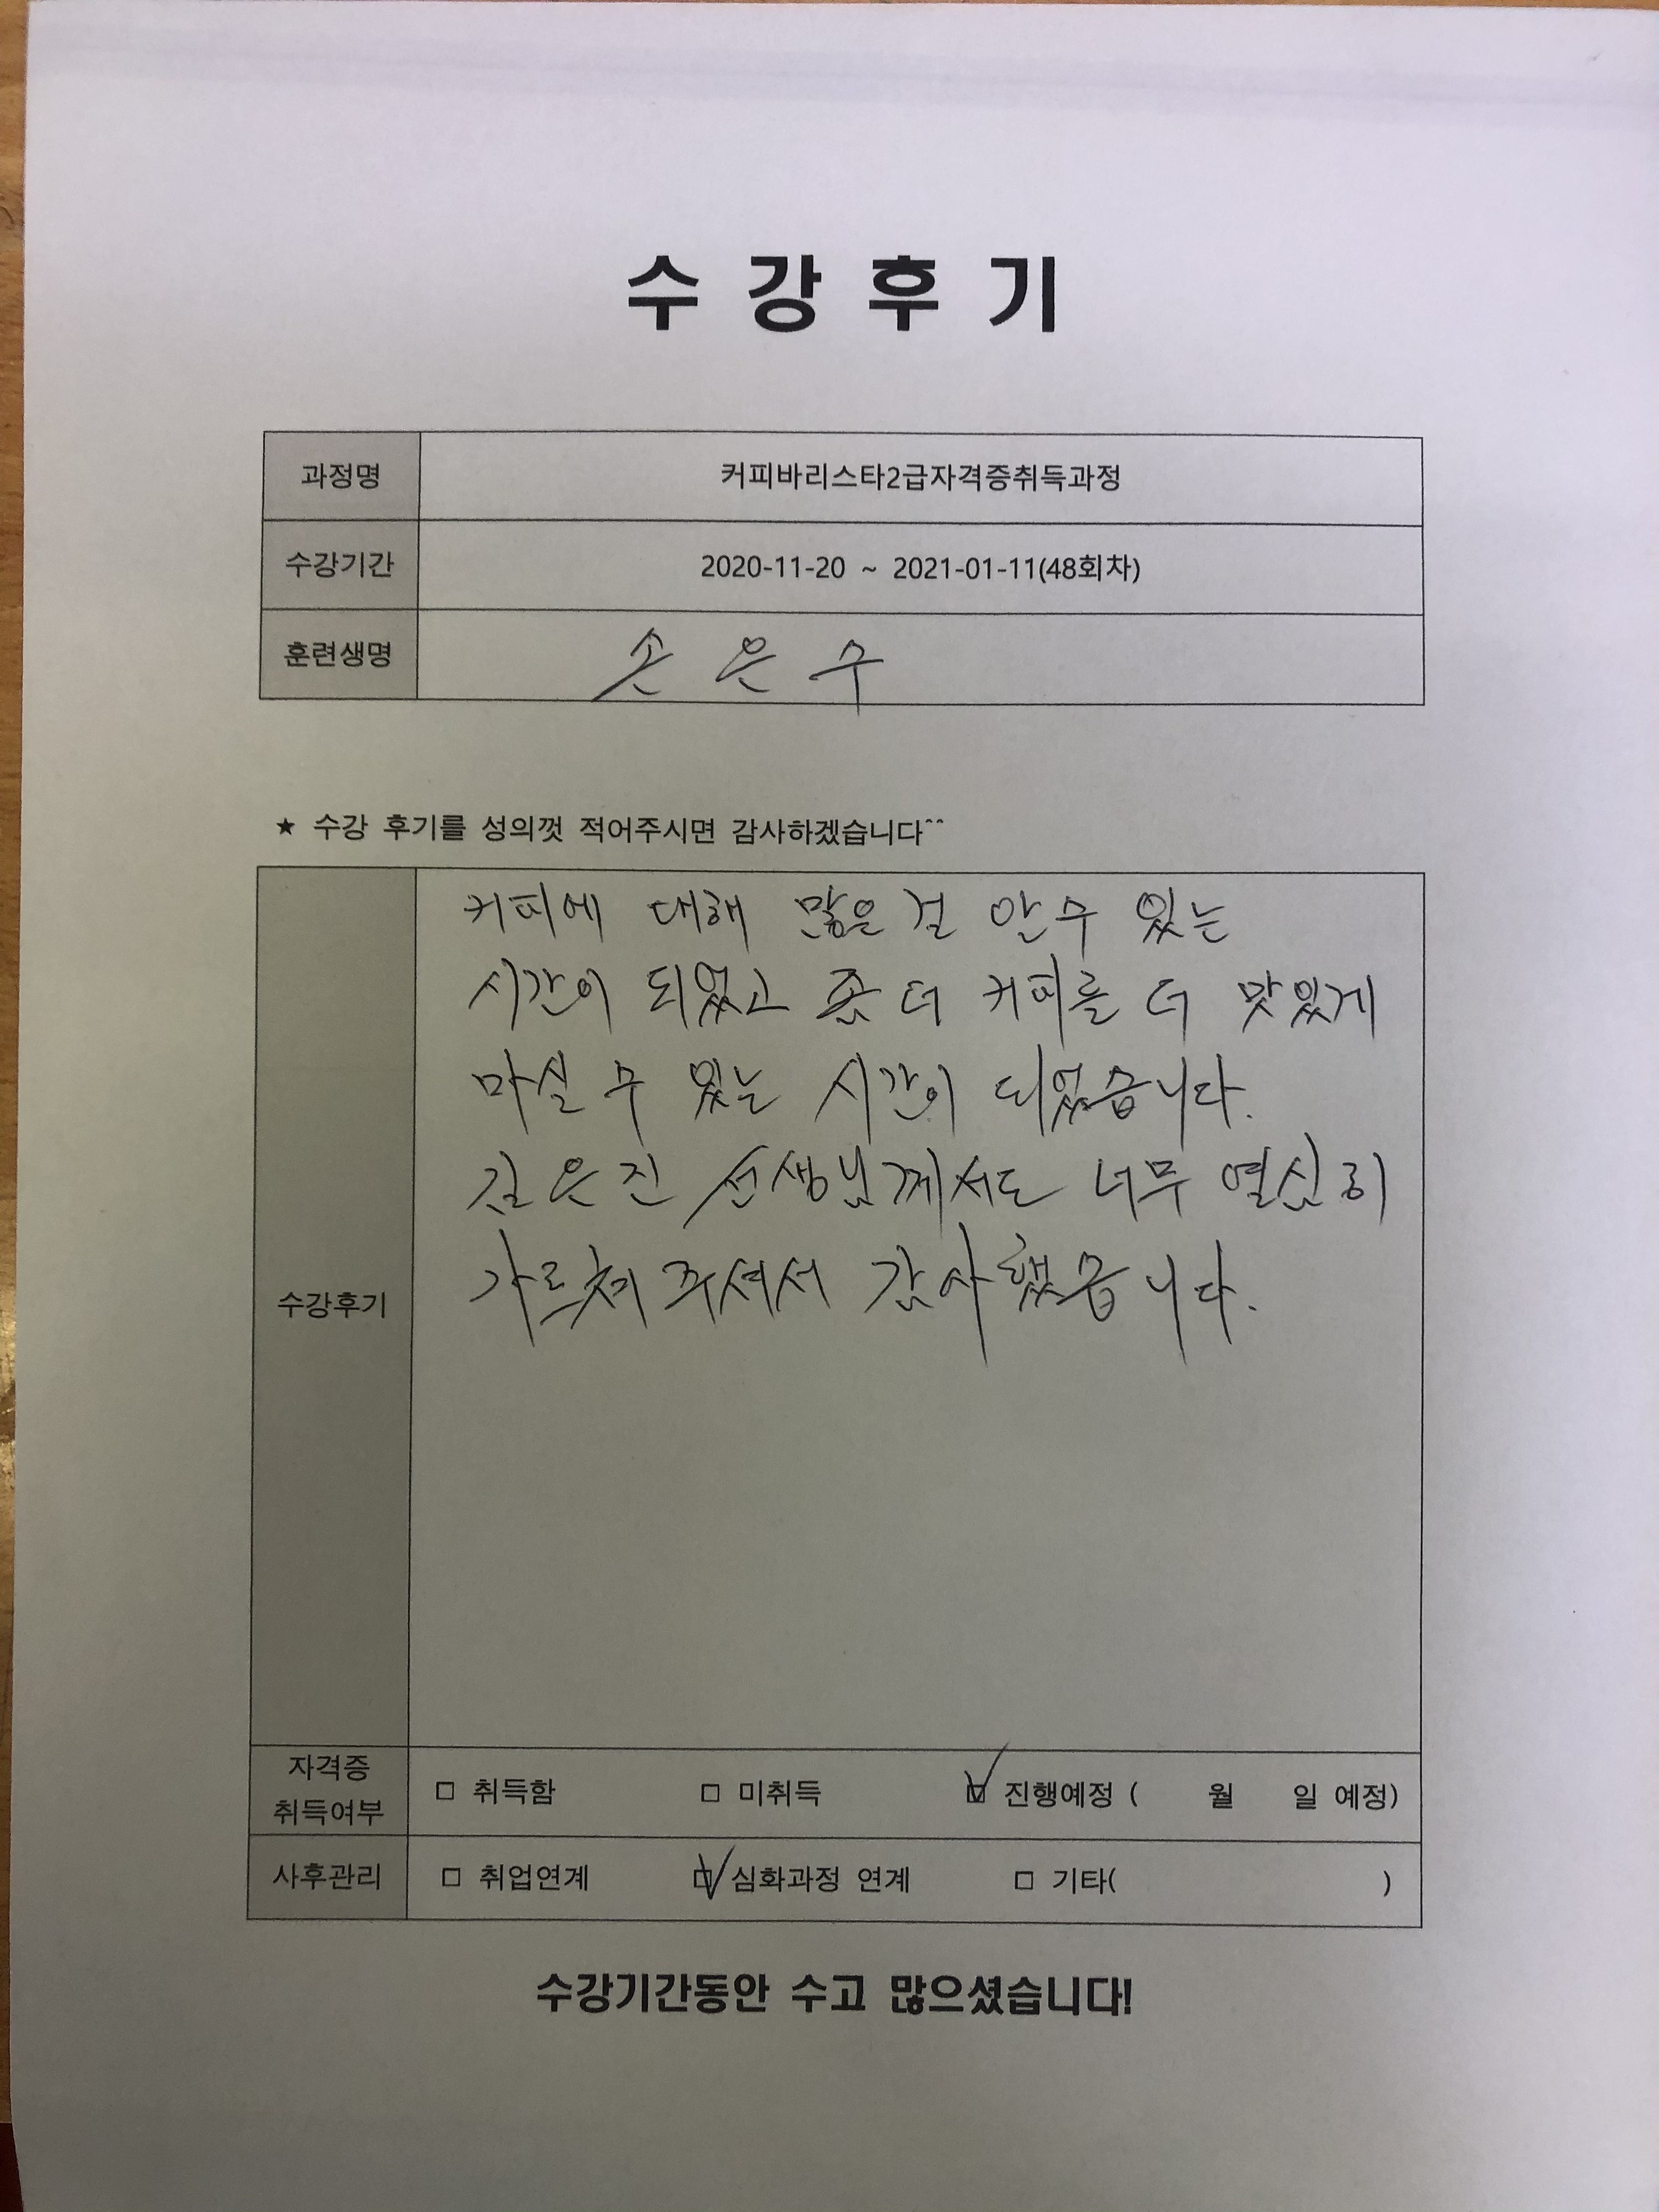 수 강 후 기
과정명 커피바리스타2급자격증취득과정
수강기간 2020-11-20 ~ 2021-01-11(48회차)
훈련생명 손 은 수
★ 수강 후기를 성의껏 적어주시면 감사하겠습니다^^
커피에 대해 많은 걸 알수 있는
시간이 되었고 좀 더 커피를 더 맛있게
마실 수 있는 시간이 되었습니다.
김은진 선생님께서도 너무 열심히
가르쳐 주셔서 감사했습니다.
수강후기
자격증
취득여부
□ 취득함 □ 미취득 ☑ 진행예정 ( 월 일 예정)
사후관리 □ 취업연계 ☑ 심화과정 연계 □ 기타( )
수강기간동안 수고 많으셨습니다!